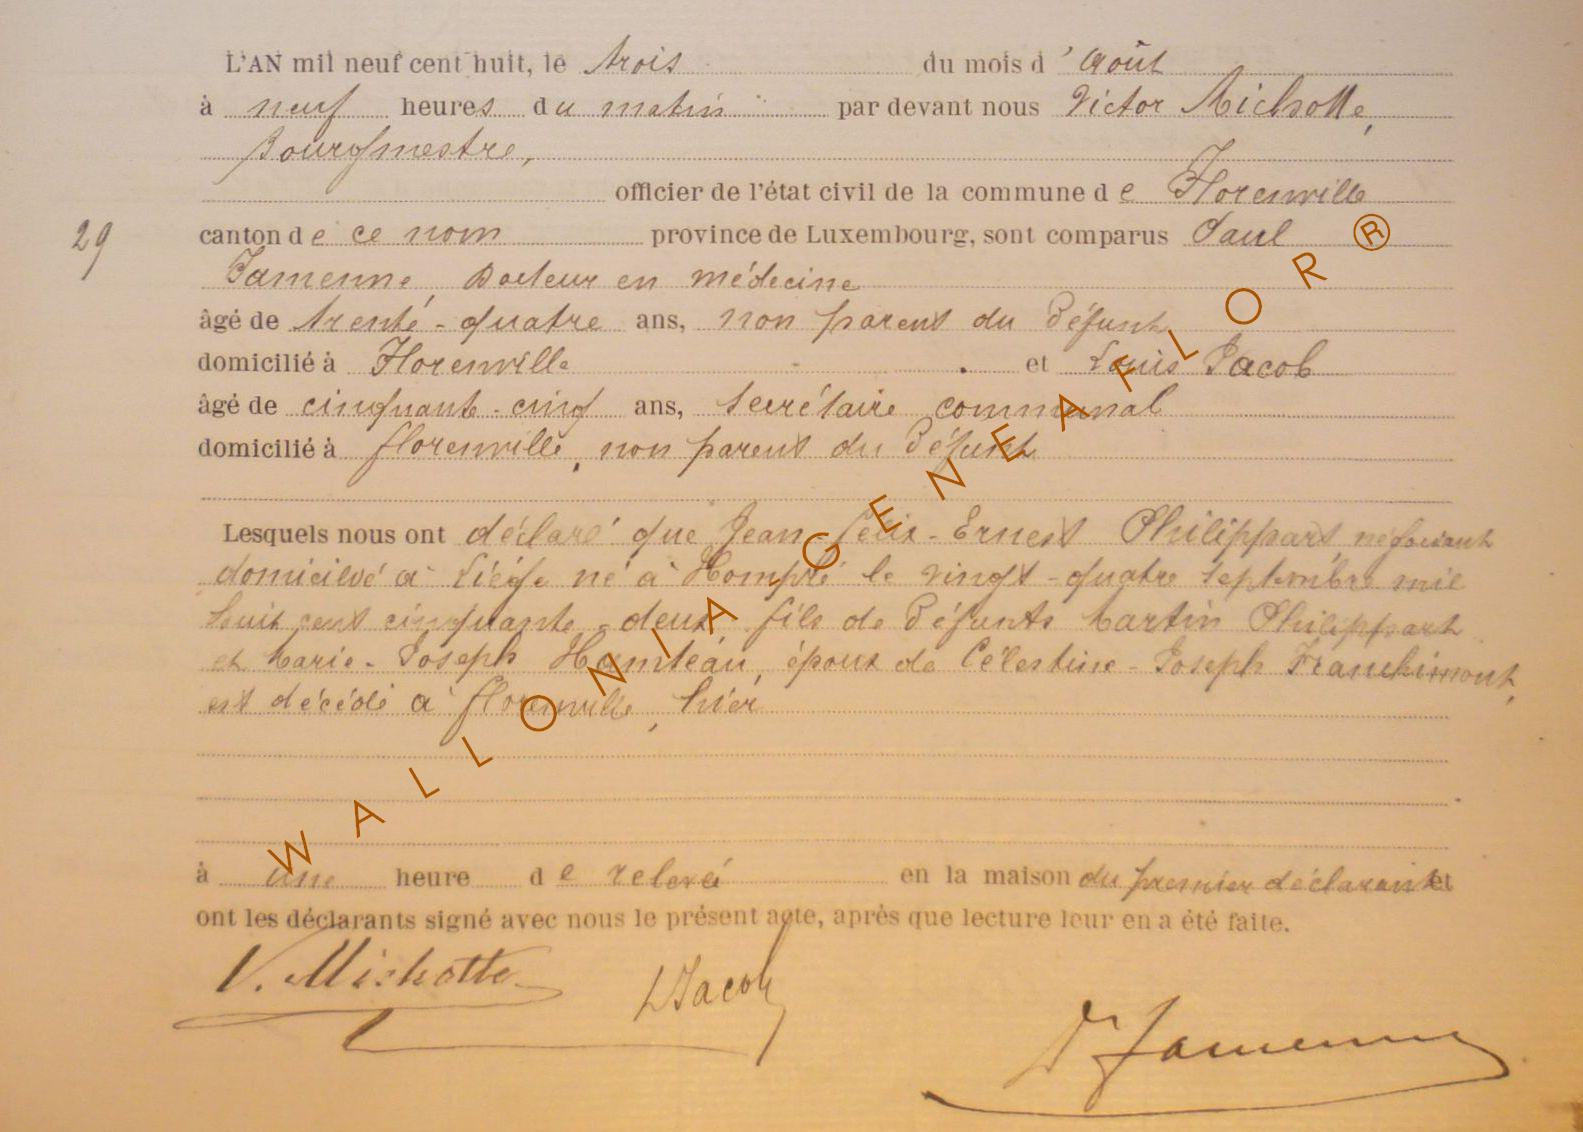 L'AN mil neuf cent huit, le trois du mois d'Août
à neuf heures du matin par devant nous Victor Michotte,
Bourgmestre,
officier de l'état civil de la commune de Florenville
29 canton de ce nom province de Luxembourg, sont comparus Paul
Jamenne, Docteur en médecine
âgé de trente-quatre ans, non parent du Défunt
domicilié à Florenville et Louis Jacob
âgé de cinquante-cinq ans, Secrétaire communal
domicilié à florenville, non parent du Défunt
Lesquels nous ont déclaré que Jean-Félix-Ernest Philippart, négociant
domicilié à Liége né à Hompré le vingt-quatre Septembre mil
huit cent cinquante-deux, fils de Défunts Martin Philippart
et Marie-Joseph époux de Célestine-Joseph Franchimont,
est décédé à florenville, hier
à une heure de relevé en la maison du premier déclarant et
ont les déclarants signé avec nous le présent acte, après que lecture leur en a été faite.
V. Michotte LJacob Dr Jamenne
WALLONIA GENEAFLOR®